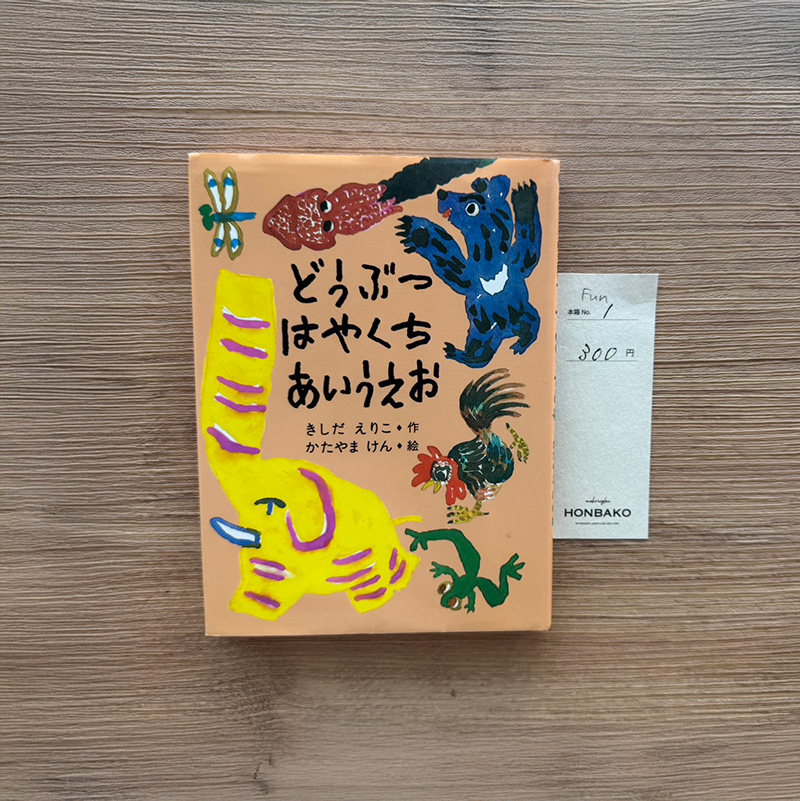 どうぶつ
はやくち
あいうえお
きしだ えりこ◆作
かたやま けん◆絵
Fun
本箱 No. 1
300 円
HONBAKO